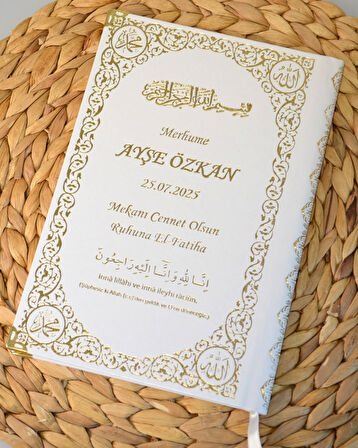 محمد
الله
بسم الله الرحمن الرحيم
Merhume
AYŞE ÖZKAN
25.07.2025
Mekanı Cennet Olsun
Ruhuna El-Fatiha
إِنَّا لِلّٰهِ وَإِنَّٓا إِلَيْهِ رَاجِعُونَ
İnnâ lillâhi ve innâ ileyhi râciûn.
محمد
الله